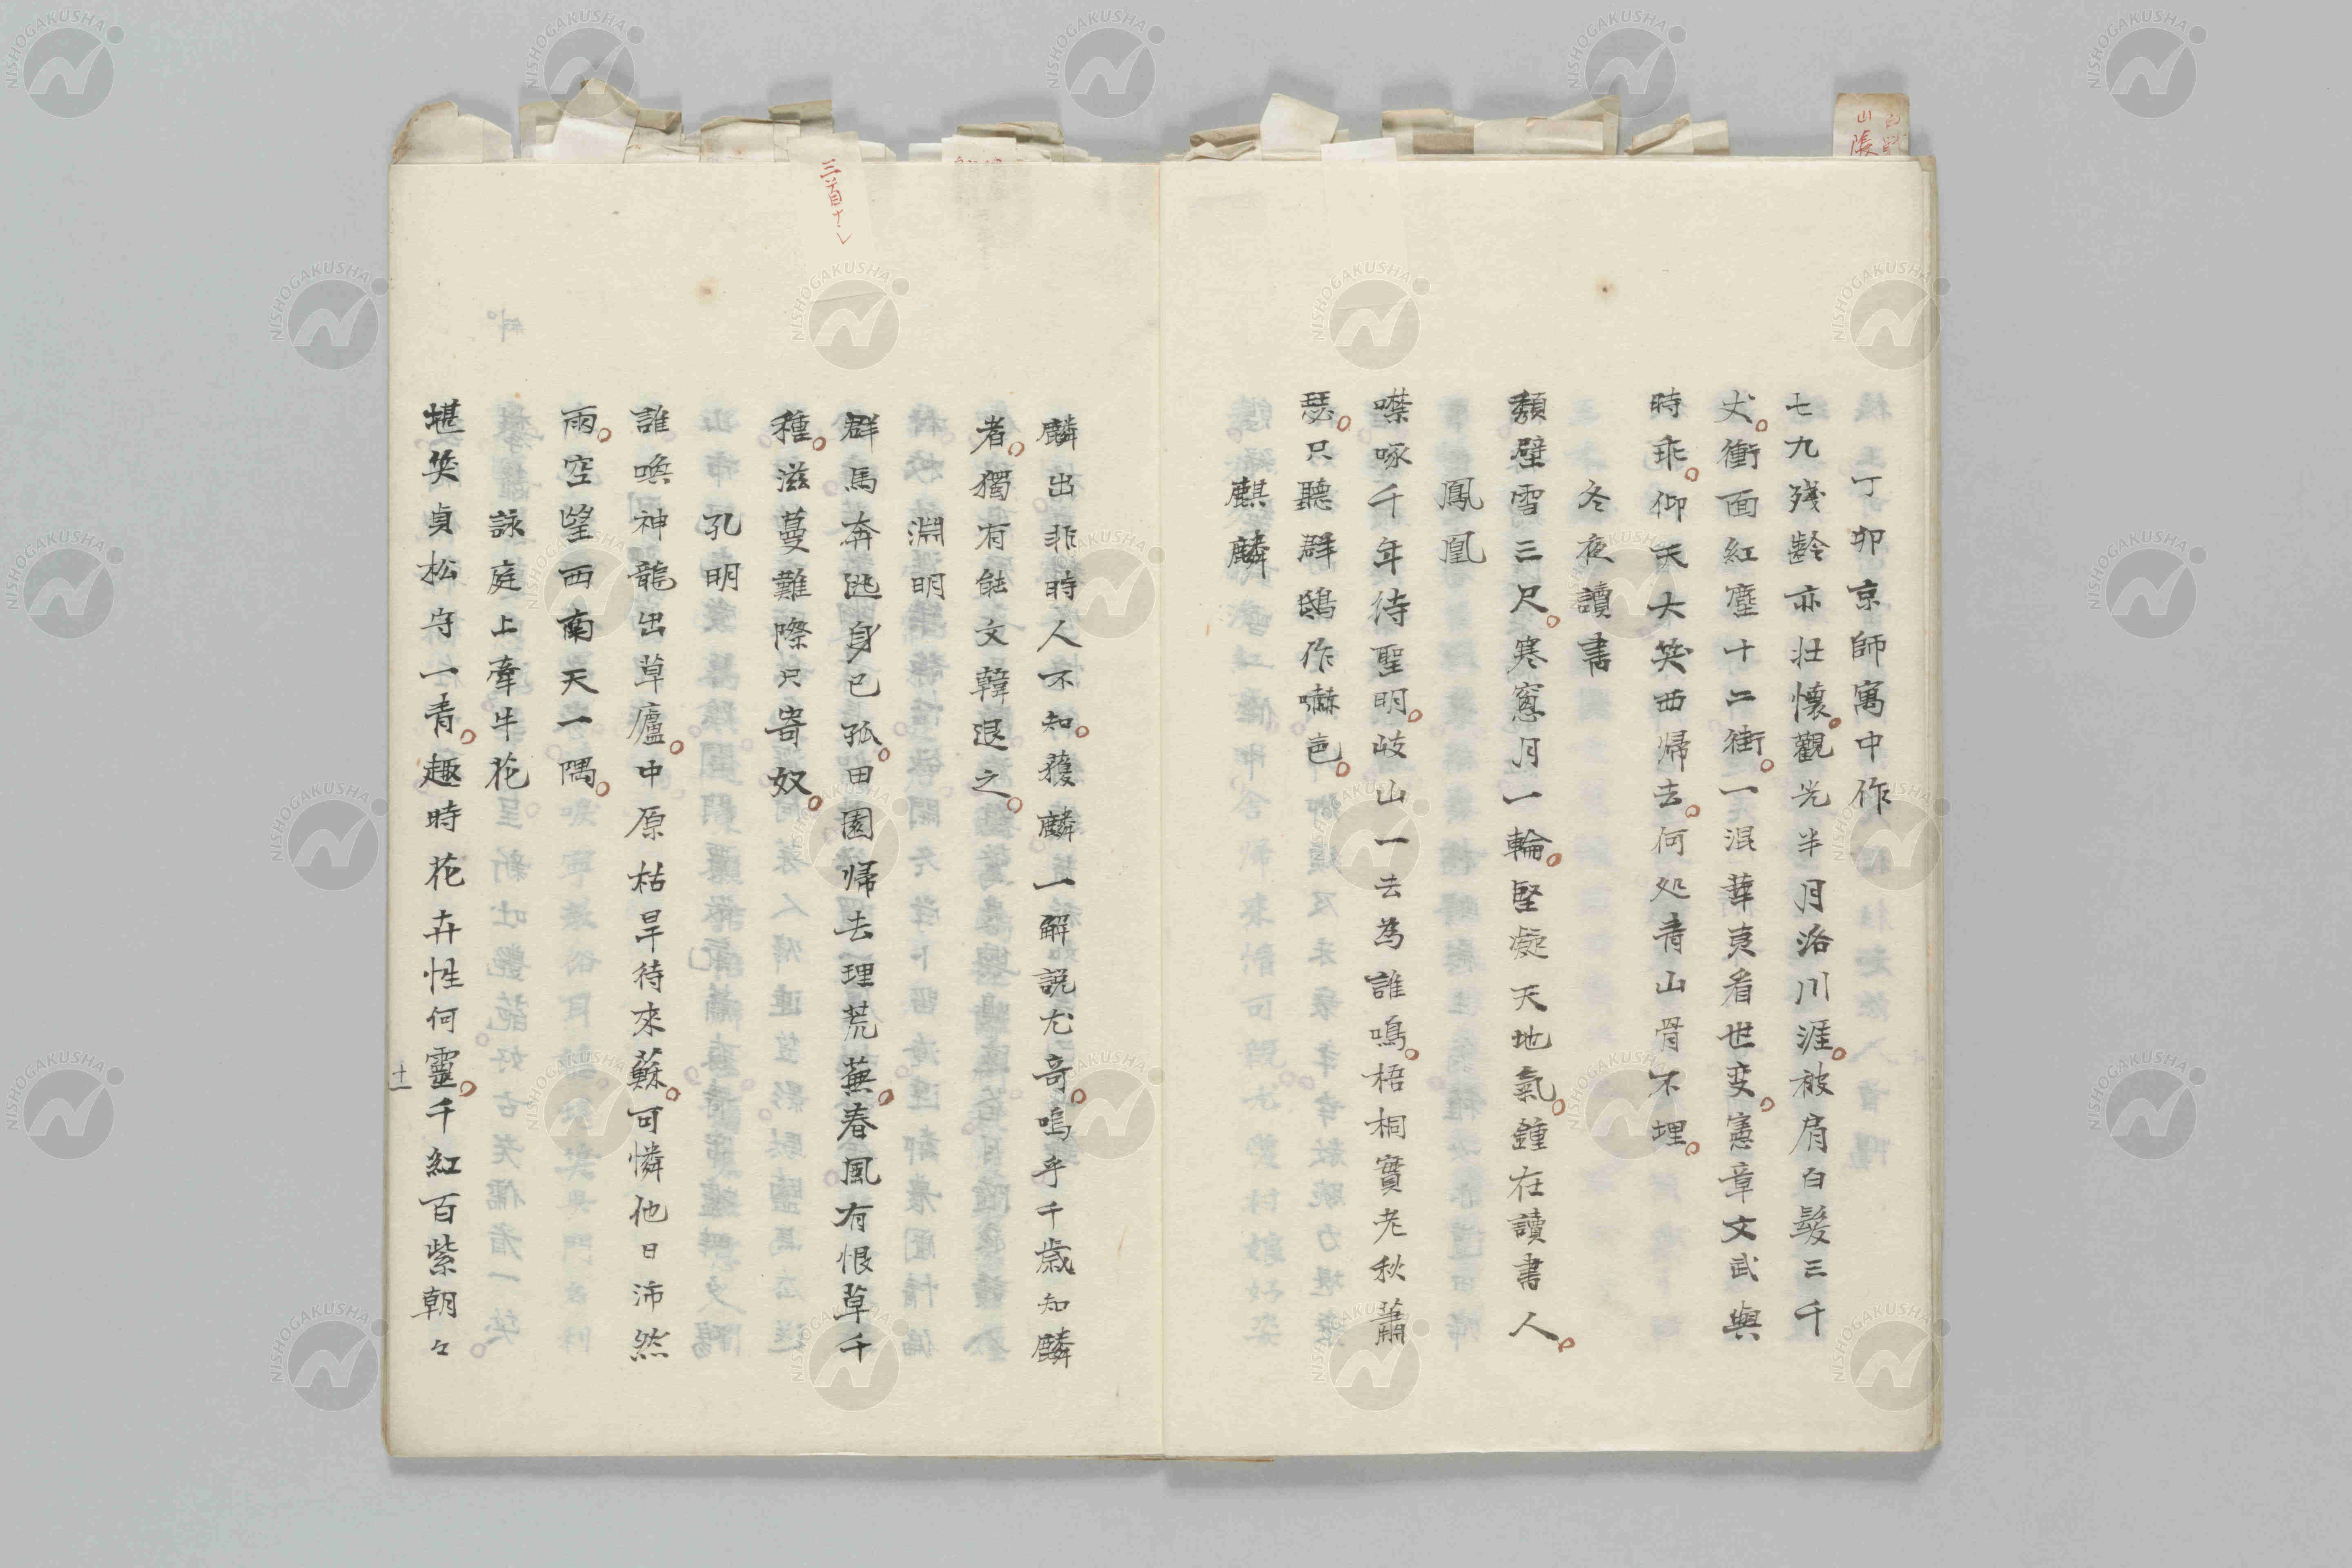 丁卯京師寓中作
七九殘齡亦壯懷。觀光半月洛川涯。被肩白髮三千
丈。衝面紅塵十二街。一混華夷看世变。憲章文武與
時乖。仰天大笑西帰去。何処青山骨不埋。
冬夜讀書
頽壁雪三尺。寒窓月一輪。堅凝天地氣。鍾在讀書人。
鳳凰
噤啄千年待聖明。岐山一去為誰鳴。梧桐實老秋蕭
瑟。只聽群鴟作嚇邑。
麒麟
麟出非時人不知。獲麟一解説尤奇。嗚乎千歳知麟
者。獨有能文韓退之。
淵明
群馬奔逃身已孤。田園帰去理荒蕪。春風有恨草千
種。滋蔓難除只寄奴。
孔明
誰喚神龍出草廬。中原枯旱待來蘇。可憐他日沛然
雨。空望西南天一隅。
詠庭上牽牛花
堪笑貞松守一青。趣時花卉性何靈。千紅百紫朝々
十一
三首十レ
NISHOGAKUSHA